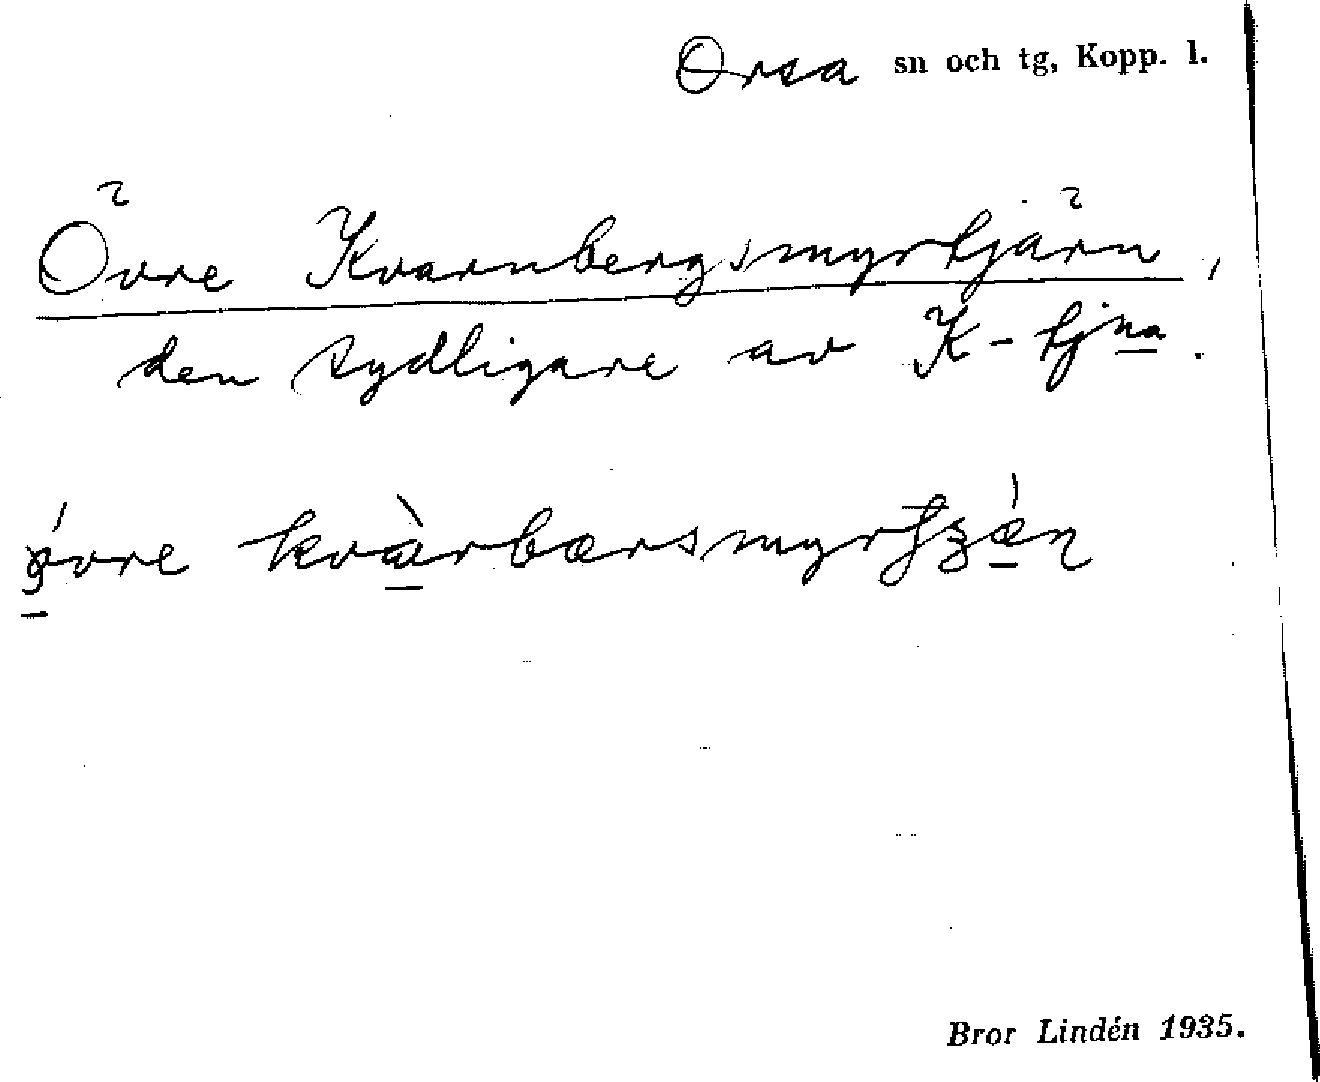 Orsa sn och tg, Kopp. l.
Övre Kvarnbergsmyrtjärn,
den sydligare av K-tjna.
övre kvàrbærsmyrtʒǽn
Bror Lindén 1935.